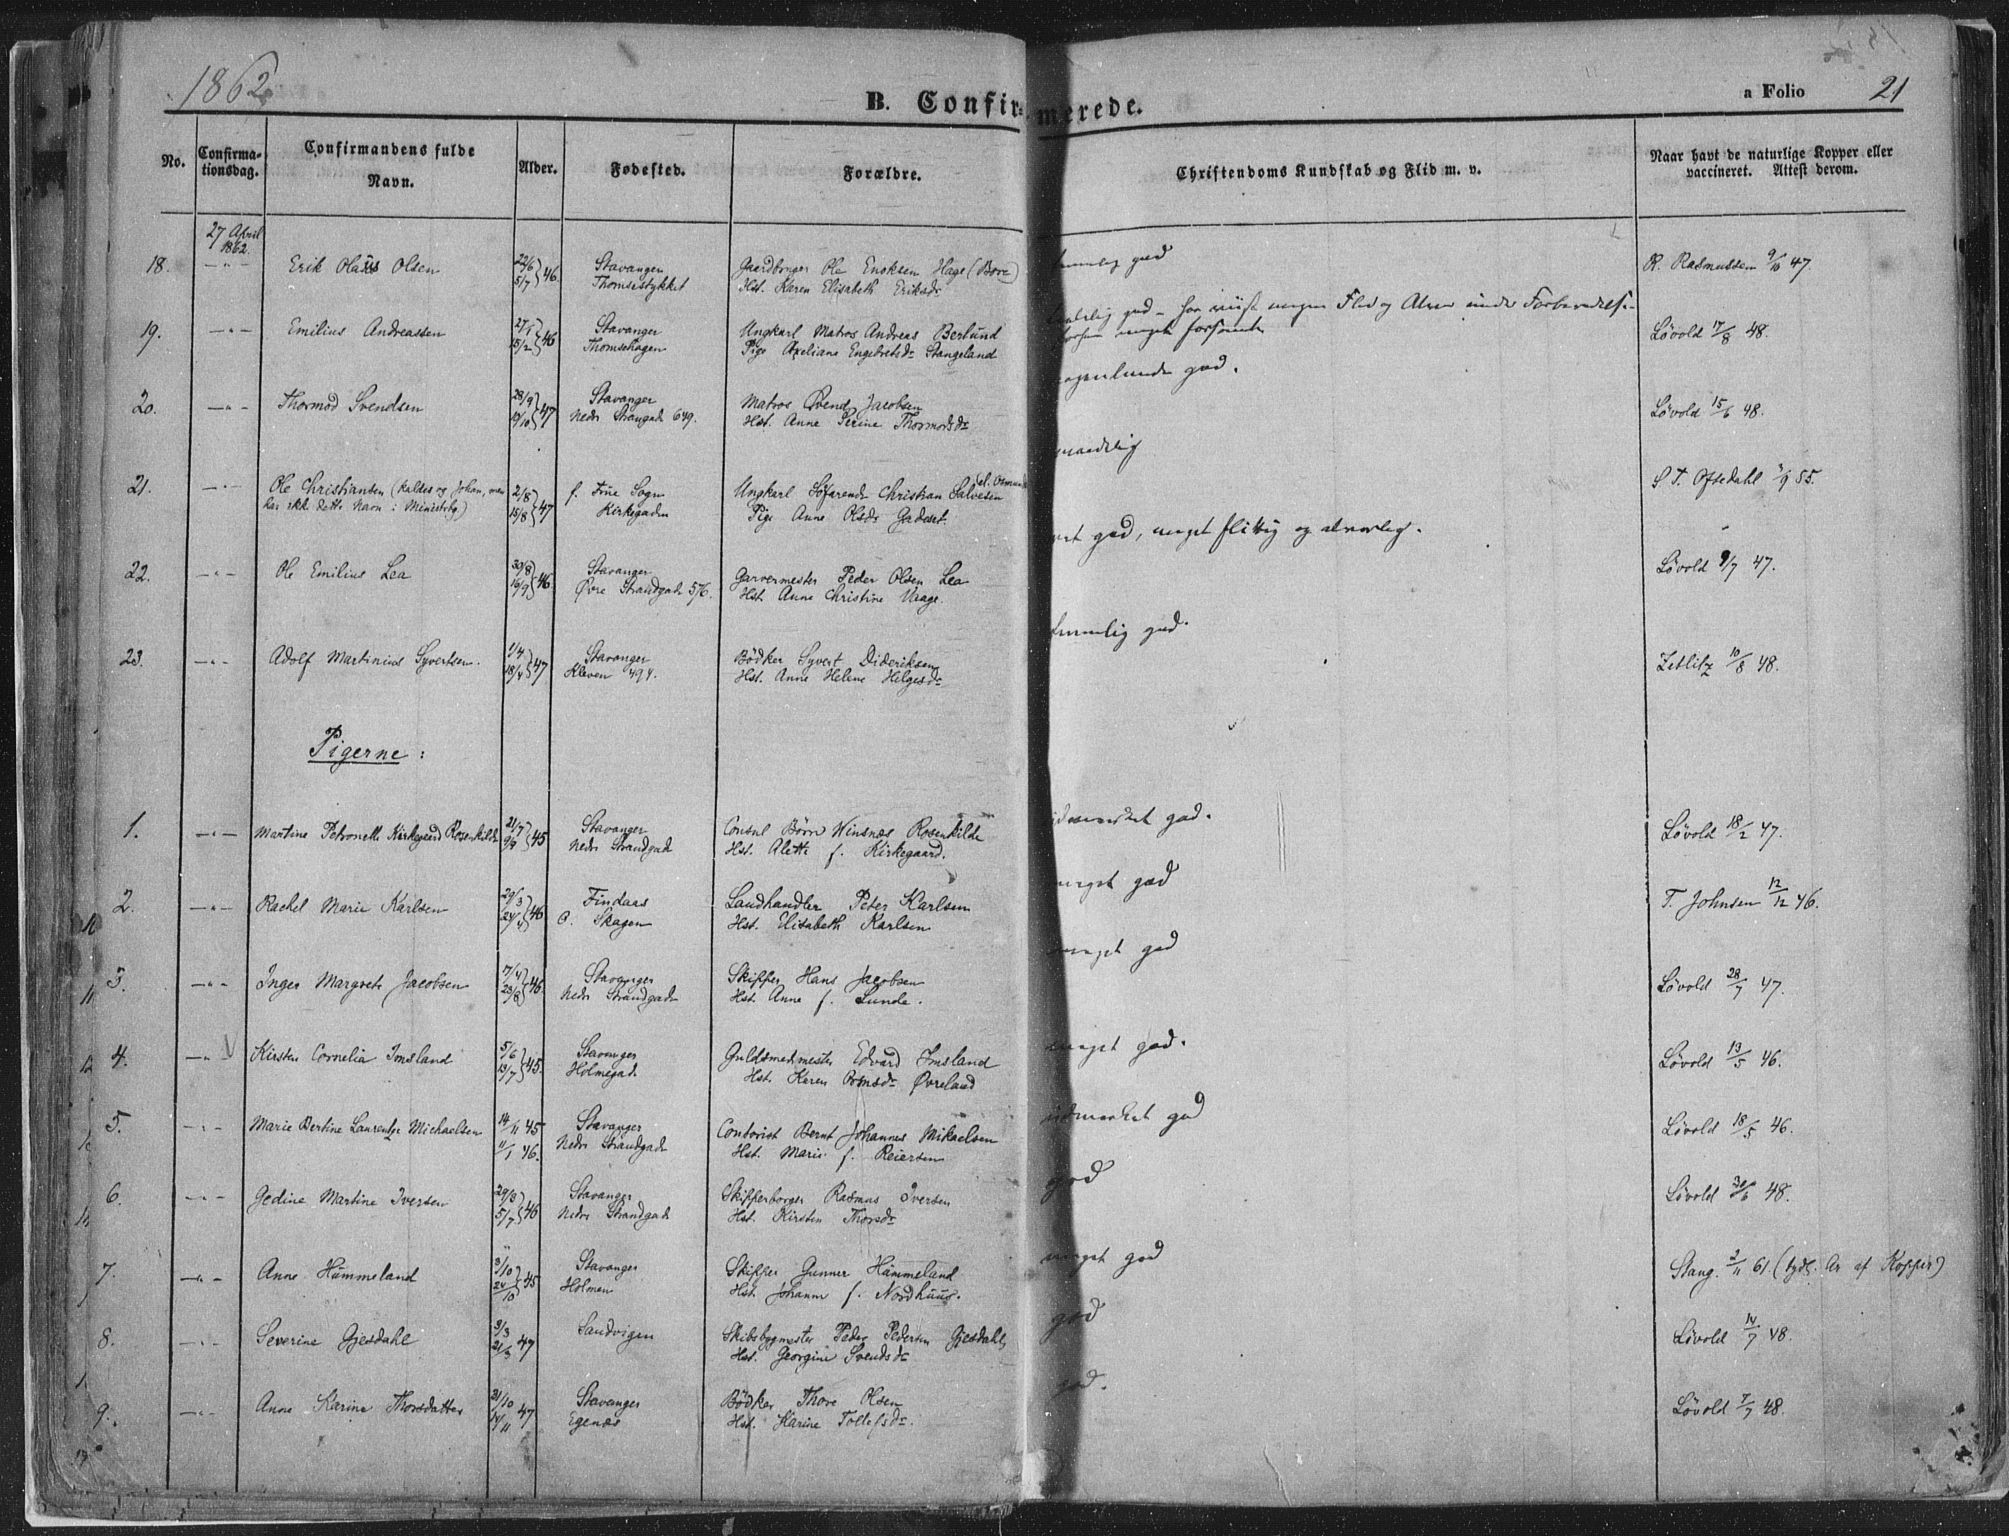 1862.
B. Confirmerede.
a Folio 21
No.
Confirma-
tionsdag.
Confirmandens fulde
Navn.
Alder.
Fødested.
Forældre.
Christendoms Kundskab og Flid m. v.
Naar havt de naturlige Kopper eller
vaccineret. Attest derom.
27 April
1862.
18. —"— Erik Olaus Olsen 22/6 5/7 } 46. Stavanger Gaardbruger Ole Enoksen Hage (Bore) god R. Rasmussen 9/10 47.
Thomsestykket Hst. Karen Elisabeth Eriksdr
19. —"— Emilius Andreassen 27/1 15/2 } 46 Stavanger Ungkarl Matros Andreas Berlund god – har viist megen Flid og Alvor under Forberedelse- Løvold 17/8 48.
Thomsehagen Pige Axeliane Engebretsdr Stangeland meget forsømt
20. —"— Thormod Svendsen 28/9 19/10 } 47 Stavanger Matros Svend Jacobsen nogenlunde god. Løvold 15/6 48.
Nedr Strandgade 649. Hst. Anne Serine Thormodsdr
21. —"— Ole Christiansen (kaldes og Johan, men 2/8 15/8 } 47 f. Frue Sogn Ungkarl Søfarende Christian Salvesen maadelig S. T. Oftedahl 55.
har ikke dette Navn i Ministbg.) Kirkegaden Pige Anne Olsdr Gadeset.
22. —"— Ole Emilius Lea 30/8 16/9 } 46. Stavanger Garvermester Peder Olsen Lea god, meget flittig og alvorlig. Løvold 9/7 47.
Øvre Strandgade 576. Hst. Anne Christine Vaage.
23. —"— Adolf Martinius Syvertsen. 1/4 18/4 } 47 Stavanger Bödker Syvert Dideriksen temmelig god. Zetlitz 10/8 48.
Kleven 494. Hst. Anne Helene Helgesdr
Pigerne:
1. —"— Martine Petronelle Kirkegaard Rosenkilde 21/7 9/9 } 45 Stavanger Consul Börre Winsnæs Rosenkilde udmærket god. Løvold 18/2 47.
Nedr Strandgade Hst. Alette f. Kirkegaard.
2. —"— Rachel Marie Karlsen 29/3 24/4 } 46 Findaas Landhandler Peter Karlsen meget god T. Johnsen 12/12 46.
O. Skagen Hst. Elisabeth Karlsen
3. —"— Inger Margrete Jacobsen 17/4 23/8 } 46. Stavanger Skipper Hans Jacobsen meget god Løvold 28/7 47.
Nedr Strandgade Hst. Anne f. Lunde.
4. —"— Kirsten Cornelia Imsland 5/6 13/7 } 45. Stavanger Guldsmedmester Edvard Imsland meget god. Løvold 13/5 46.
Holmegade Hst. Karen Øvreland
5. Marie Bertine Laurentze Michaelsen 14/11 45 Stavanger Contorist Bernt Johannes Mikaelsen udmærket god Løvold 18/5 46.
11/1 46. Nedr Strandgade Hst. Marie f. Reiersen
6. —"— Gedine Martine Iversen 29/3 5/7 } 46 Stavanger Skipperborger Rasmus Iversen god Løvold 30/6 48.
Nedr Strandgade Hst. Kirsten Thorsdr
7. —"— Anne Hummeland 3/10 24/10 } 45 Stavanger Skipper Gunner Hummeland meget god Stang. 2/11 61 (tydl. Ar af Kopper)
Holmen Hst. Johanne f. Nordhuus.
8. —"— Severine Gjesdahl 3/3 21/3 47 Sandvigen Skibsbygmester Peder Pedersen Gjesdahl, god Løvold 14/7 48.
Hst. Georgine Svendsdr
9. —"— Anne Karine Thorsdatter 21/10 14/11 47 Stavanger Bödker Thore Olsen god. Løvold 7/7 48.
Egenæs Hst. Karine Tollefsdr.